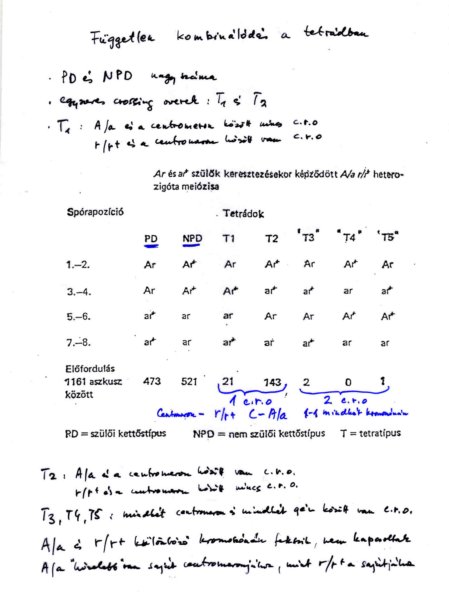 Független kombinálódás a tetrádban
· PD és NPD nagy száma
· egyszeres crossing overek : T1 és T2
· T1 : A/a és a centromeron között nincs c.r.o
r/r+ és a centromeron között van c.r.o
Ar és ar+ szülők keresztezésekor képződött A/a r/r+ hetero-
zigóta meiózisa
Spórapozíció Tetrádok
PD NPD T1 T2 "T3" "T4" "T5"
1.–2. Ar Ar+ Ar Ar+ Ar Ar+ Ar
3.–4. Ar Ar+ Ar+ ar+ ar+ ar ar
5.–6. ar+ ar ar Ar Ar+ Ar+ Ar+
7.–8. ar+ ar ar+ ar ar ar ar+
Előfordulás
1161 aszkusz 473 521 21 143 2 0 1
között
1 c.r.o 2 c.r.o
Centromeron – r/r+ C – A/a 1-1 mindkét kromoszómán
PD = szülői kettőstípus NPD = nem szülői kettőstípus T = tetratípus
T2 : A/a és a centromeron között van c.r.o.
r/r+ és a centromeron között nincs c.r.o.
T3, T4, T5 : mindkét centromeron és mindkét gén között van c.r.o.
A/a és r/r+ különböző kromoszómán fekszik, nem kapcsoltak
A/a saját centromeronjához, mint r/r+ a sajátjához